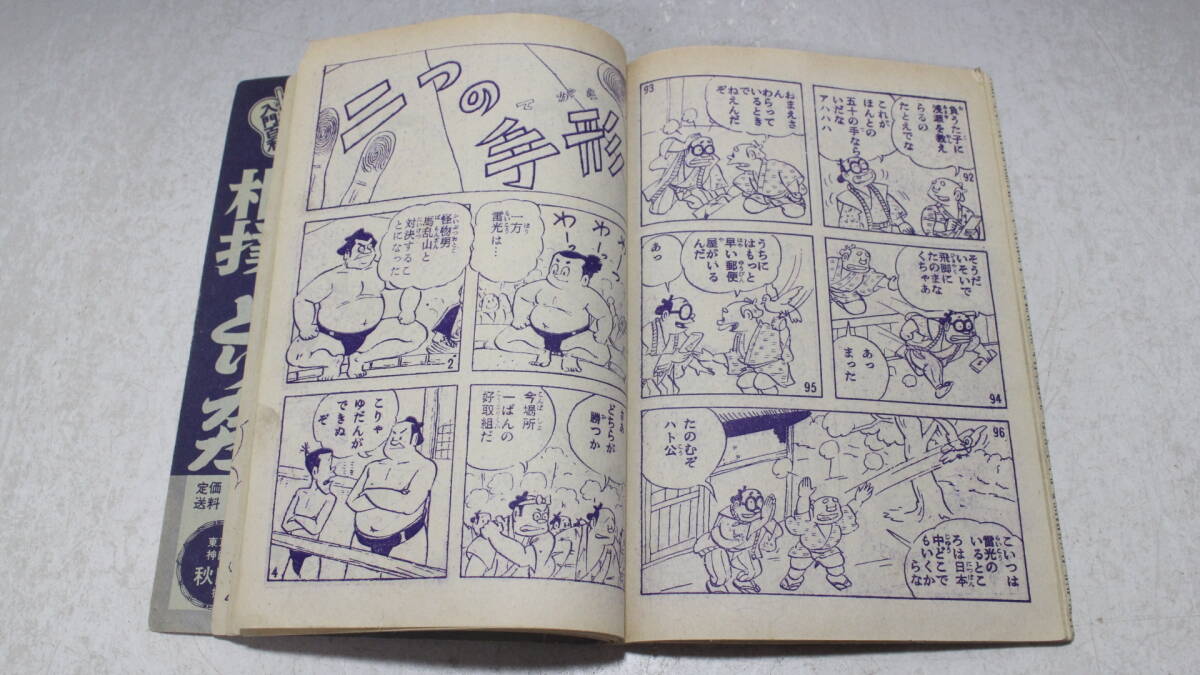 負うた子に
浅瀬を教え
らるの
たとえでな
これが
ほんとの
五十の手なら
いだな
アハハハ
92
おまえさ
ん
わらって
いるとき
で
ねえんだ
ぞ
93
そうだ
いそいで
飛脚に
たのまな
くちゃあ
あっ
まった
94
うちに
はもっと
早い郵便
屋がいる
んだ
あっ
95
たのむぞ
ハト公
96
こいつは
雷光の
いるとこ
ろは日本
中どこで
もいくか
らな
二つの手形
てがた
一方
雷光は…
わーっ
わーっ
怪物男
馬乱山と
対決するこ
とになった
2
どちらが
勝つか
今場所
一ばんの
好取組だ
こりゃ
ゆだんが
できぬ
ぞ
4
入門百科
相撲とり方
定価
送料
東京
神田
秋